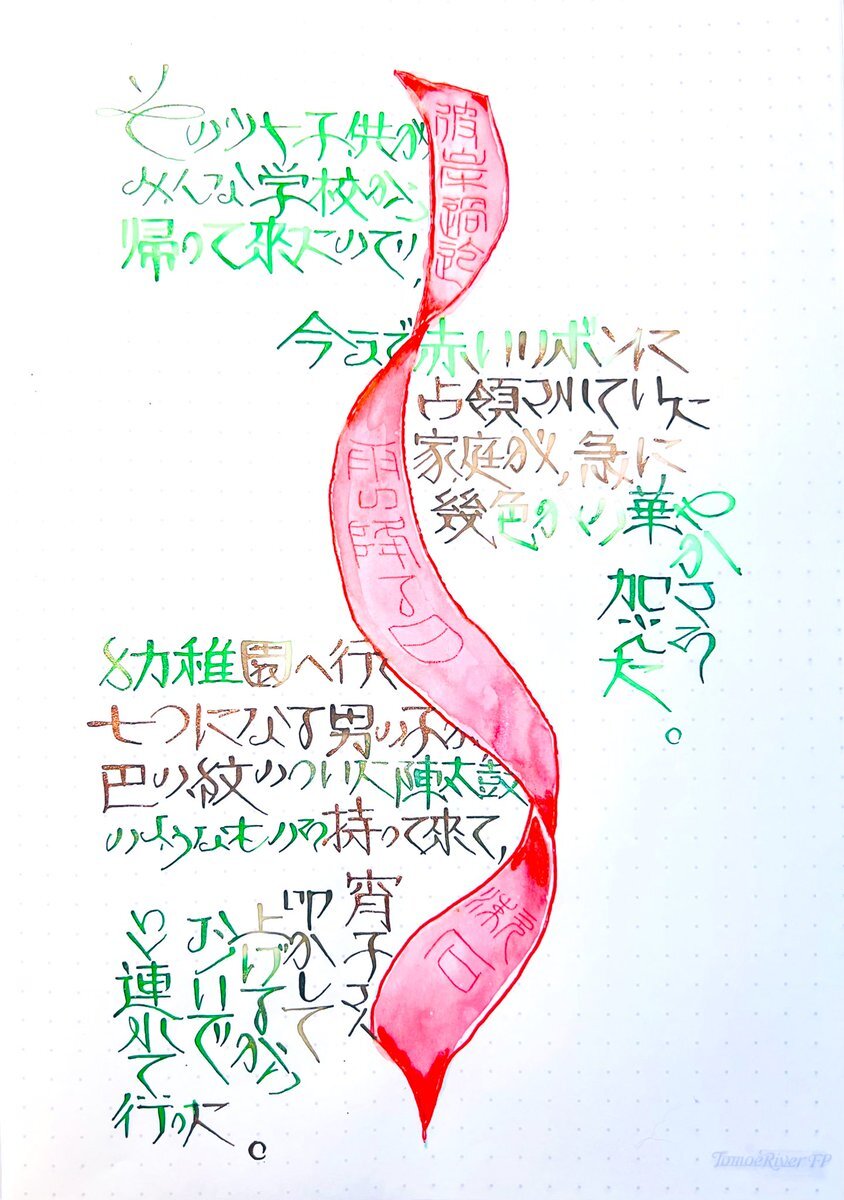 彼岸過迄
雨の降る日
漱石
そのうち子供が
みんな学校から
帰って来たので,
今まで赤いリボンに
占領されていた
家庭が,急に
幾色かの華
やかさを
加えた。
幼稚園へ行く
七つになる男の子が,
巴の紋のついた陣太鼓
のようなものを持って来て,
宵子さん
叩かして
上げるから
おいで
と連れて行った。
TomoeRiver FP